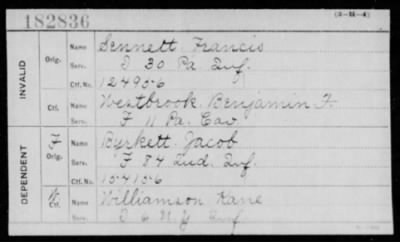 182836
(3-M-4)
INVALID
Orig.
Name Sennett Francis
Serv. D 30 Pa Inf.
Ctf. No. 124956
Ctf.
Name Westbrook Benjamin F.
Serv. F 11 Pa. Cav.
DEPENDENT
Orig.
Name Byrkett Jacob
Serv. F 84 Ind. Inf.
Ctf. No. 154156
Ctf.
Name Williamson Kane
Serv. D 6 N.Y. Inf